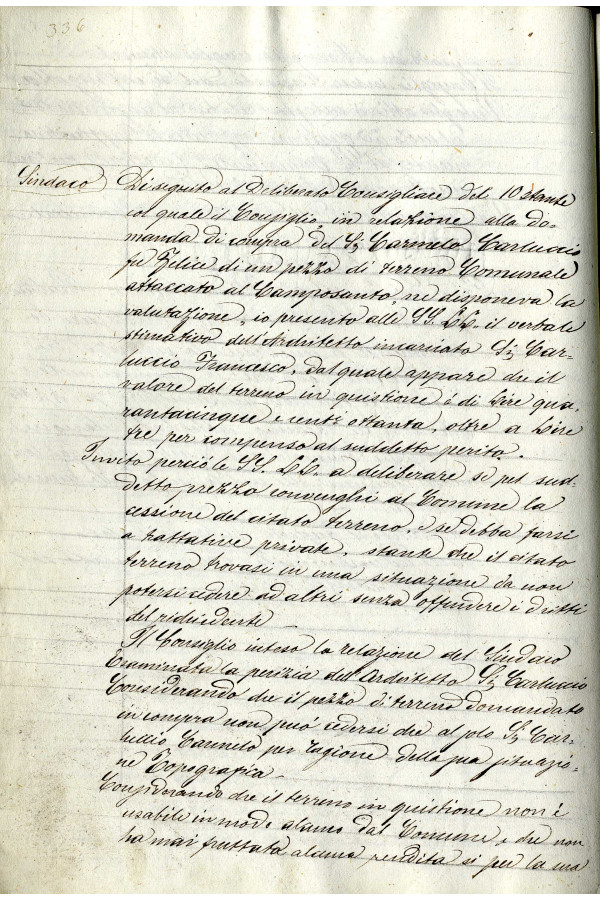 336
Sindaco Di seguito al Deliberato Consigliare del 10 stante
col quale il Consiglio, in relazione alla do-
manda di compra del Sig. Carmelo Carluccio
fu Felice di un pezzo di terreno Comunale
attaccato al Camposanto, ne disponeva la
valutazione, io presento alle SS. LL. il verbale
stimativo dell'Architetto incaricato Sig. Car-
luccio Francesco, dal quale appare che il
valore del terreno in quistione è di Lire qua-
rantacinque e centi ottanta, oltre a Lire
tre per compenso al suddetto perito.
Invito perciò le SS. LL. a deliberare se pel sud-
detto prezzo convenghi al Comune la
cessione del citato terreno, e se debba farsi
a trattative private, stante che il citato
terreno trovasi in una situazione da non
potersi cedere ad altri senza offendere i dritti
del richiedente
Il Consiglio inteso la relazione del Sindaco
Esaminata la perizia dell'Architetto Sig. Carluccio
Considerando che il pezzo di terreno domandato
in compra non può cedersi che al solo Sig. Car-
luccio Carmelo per ragione della sua situazio-
ne Topografica
Considerando che il terreno in quistione non è
usabile in modo alcuno dal Comune, e che non
ha mai fruttata alcuna rendita sì per la sua